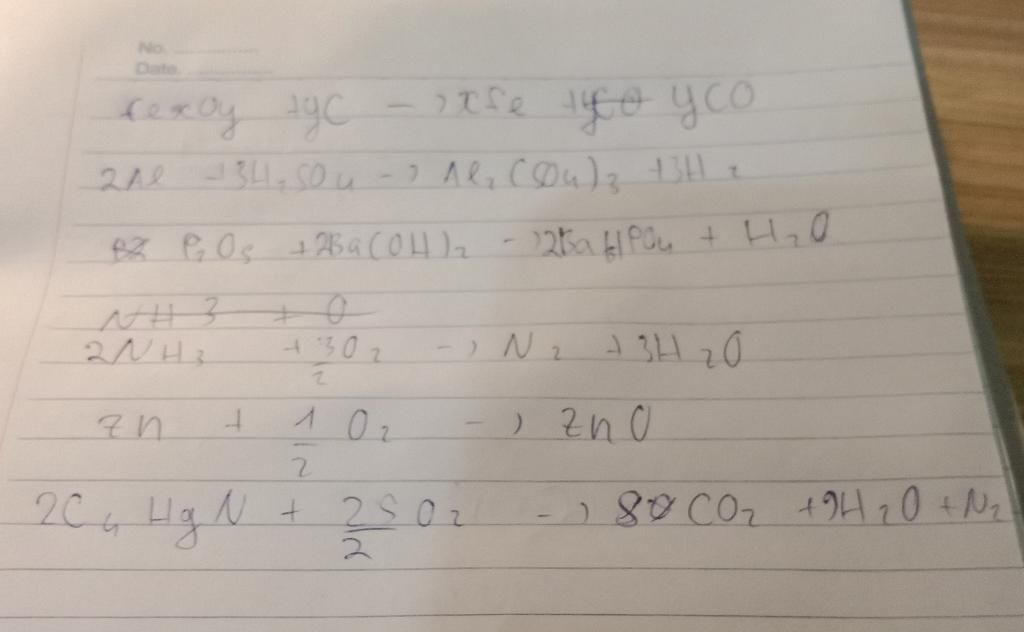 No. ..............
Date. ..............
FexOy + yC -> xFe + yCO yCO
2Al + 3H2SO4 -> Al2(SO4)3 + 3H2
P2O5 + 2Ba(OH)2 -> 2BaHPO4 + H2O
NH3 + O
2NH3 + 3/2 O2 -> N2 + 3H2O
Zn + 1/2 O2 -> ZnO
2C4H9N + 25/2 O2 -> 8CO2 + 9H2O + N2